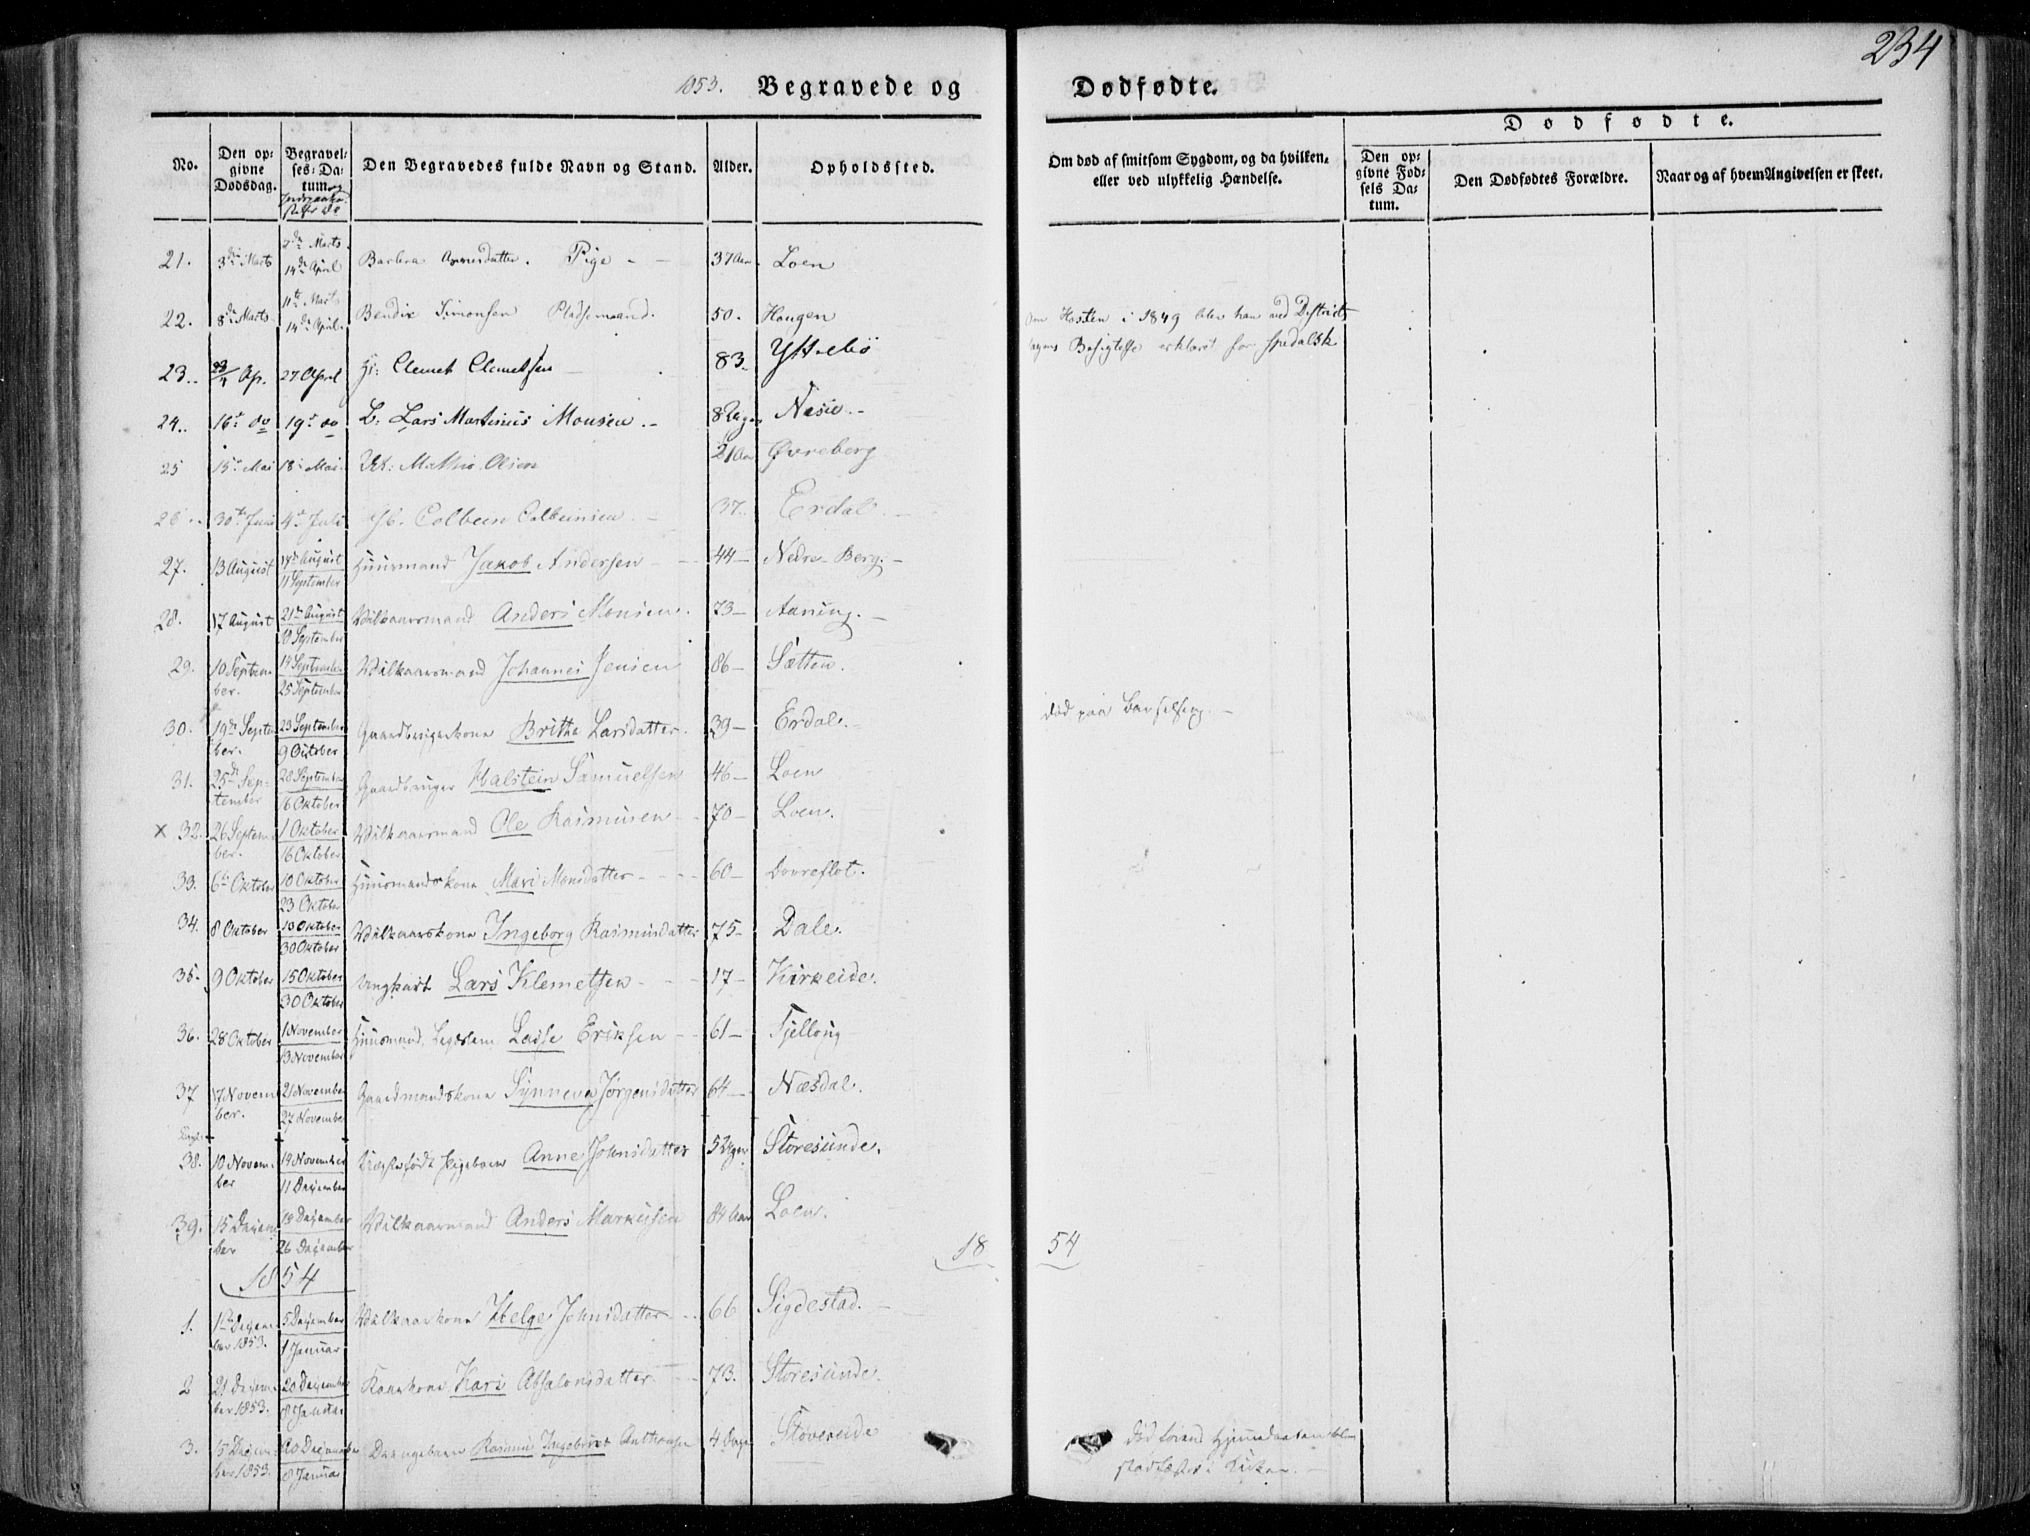 234
1853. Begravede og Dødfødte.
Dødfødte.
No.
Den op-
givne
Dødsdag.
Begravel-
ses-Da-
tum.
Den Begravedes fulde Navn og Stand.
Alder.
Opholdssted.
Om død af smitsom Sygdom, og da hvilken,
eller ved ulykkelig Hændelse.
Den op-
givne Fød-
sels Da-
tum.
Den Dødfødtes Forældre.
Naar og af hvem Angivelsen er skeet.
21. 3de Marts 14de April Barbra datter. Pige 37 Aar Loen
22. 8de Marts 11te Marts 14de April Bendix Simonsen Pladsemand. 50. Hougen
Høsten i 1849 blev han ved Districts
Besigtelse erklæret for spedalsk
23. 23/4 Ap. 27 April Clemet Clemetsen 83. Yttrebø
24. 16de do 19de do Lars Martinus Monsen 8 Dage Nesie
25 15de Mai 18de Mai Mathis Olsen 21 Aar Øvreberg
26. 30te Juni 4de Juli Colbein Colbeinsen 37. Erdal
27. 13 August 17de August 11 September Huusmand Jakob Andersen 44 Nedre Berg
28. 17 August 21de August 11 September Vilkaarsmand Anders Monsen 73 Aaning
29. 10 September. 14 September 25 September Vilkaarsmand Johannes Jensen 86 Sætten.
30. 19de September. 23 September 9 October Gaardbrugerkone Britha Larsdatter. 39 Erdal.
død paa Barselseng.
31. 25de September 28 September 16 Oktober Gaardbruger Halstein Samuelsen 46 Loen
x 32. 26 September. 1 Oktober 16 Oktober Vilkaarsmand Ole Rasmusen 70 Loen.
33. 6te Oktober 10 Oktober 23 Oktober Huusmandskone Mari Monsdatter 60 Dovreflot.
34. 8 Oktober 13 Oktober 30 Oktober Vilkaarskone Ingeborg Rasmusdatter 75 Dale.
35. 9 Oktober 15 Oktober 30 Oktober Ungkarl Lars Klemetsen 17 Kirkeide.
36. 28 Oktober 1 November 13 November Huusmand, Legdslem Lasse Eriksen 61 Fjellong
37 17 November. 21 November 27 November Gaardmandskone Synneva Jørgensdatter 64 Næsdal.
38. 10 November 14 November 11 December født Pigebarn Anne Johnsdatter 5 Dage Storesunde.
39. 15 December 18 December 26 December Vilkaarsmand Anders Markusen 84 Aar Loen.
18 54
1854
1. 1ste December 1853. 5 December 1 Januar Vilkaarkone Helge Johnsdatter 66 Sigdestad.
2 21 December 1853. 20 December 8 Januar Kone Kari Absalonsdatter 73. Storesunde.
3. 15 December 1853. 20 December 8 Januar Drengebarn Rasmus Ingebrigt Anthonsen 4 Dage Stovereide
død førend Hjemmedaaben blev
stadfæstet i Kirken.